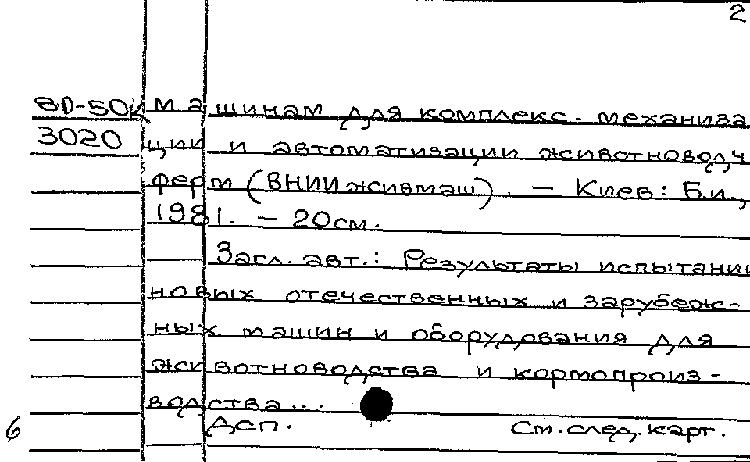 2
8D-50К машинам для комплекс. механиза
3020 ции и автоматизации животновод.ч
ферм (ВНИИживмаш). — Киев: Б.и.,
1981. — 20см.
Загл. авт.: Результаты испытании
новых отечественных и зарубеж-
ных машин и оборудования для
животноводства и кормопроиз-
водства...
6 Дсп. См. след. карт.